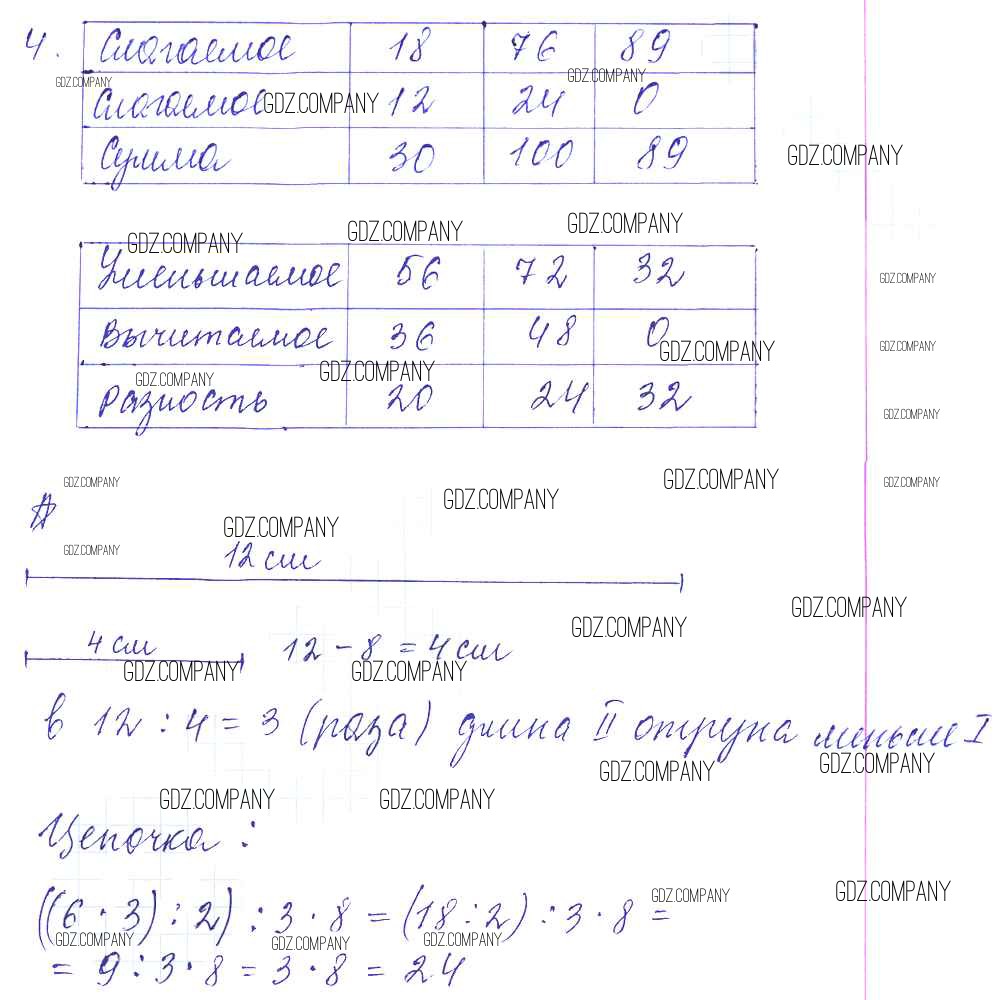 4. Слагаемое 18 76 89
GDZ.COMPANY GDZ.COMPANY
Слагаемое GDZ.COMPANY 12 24 0
Сумма 30 100 89 GDZ.COMPANY
GDZ.COMPANY GDZ.COMPANY GDZ.COMPANY
Уменьшаемое 56 72 32 GDZ.COMPANY
Вычитаемое 36 48 0 GDZ.COMPANY
GDZ.COMPANY GDZ.COMPANY GDZ.COMPANY
Разность 20 24 32 GDZ.COMPANY
GDZ.COMPANY GDZ.COMPANY GDZ.COMPANY GDZ.COMPANY
GDZ.COMPANY
12 см
GDZ.COMPANY
GDZ.COMPANY GDZ.COMPANY
4 см 12 - 8 = 4 см
GDZ.COMPANY GDZ.COMPANY
в 12 : 4 = 3 (раза) длина II отрезка меньше I
GDZ.COMPANY GDZ.COMPANY
GDZ.COMPANY GDZ.COMPANY
Цепочка :
((6 · 3) : 2) : 3 · 8 = (18 : 2) : 3 · 8 = GDZ.COMPANY GDZ.COMPANY
GDZ.COMPANY GDZ.COMPANY GDZ.COMPANY
= 9 : 3 · 8 = 3 · 8 = 24